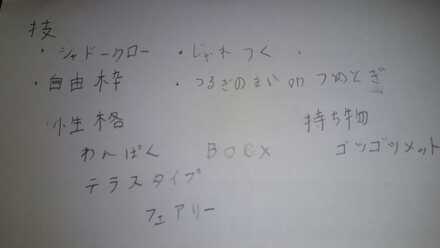 技
・シャドークロー ・じゃれつく ・
・自由枠 ・つるぎのまい or つめとぎ
性格 持ち物
わんぱく BOCX ゴツゴツメット
テラスタイプ
フェアリー